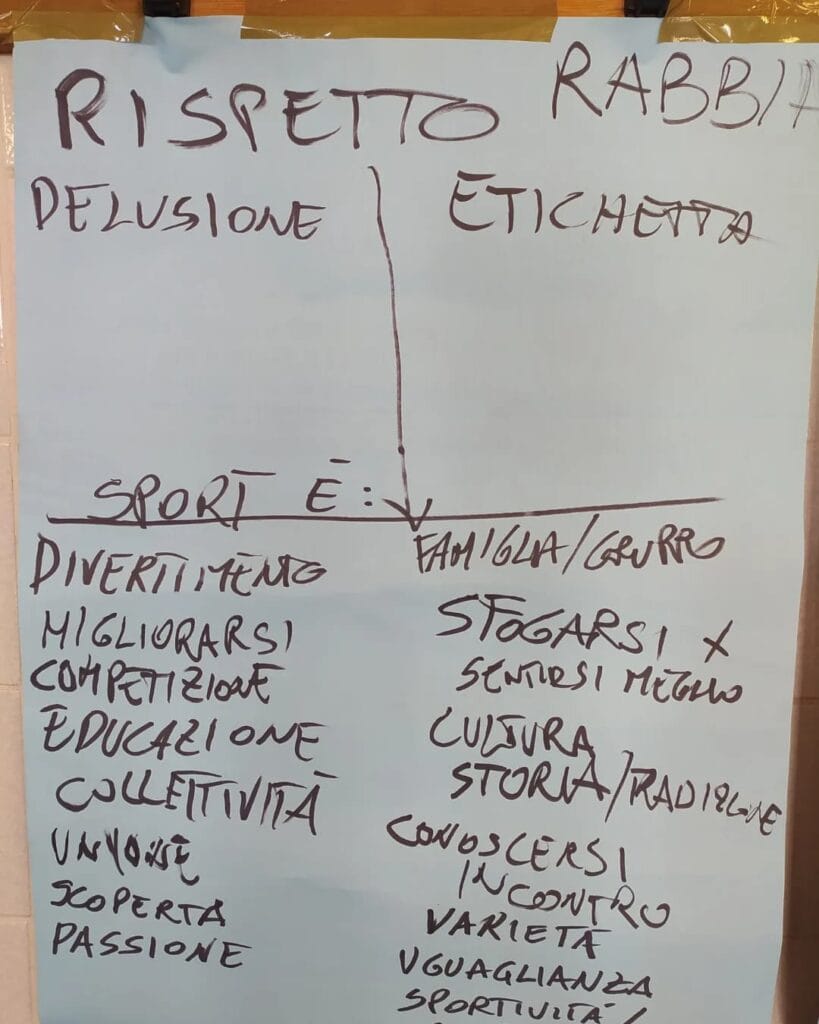 RISPETTO
RABBIA
DELUSIONE
ETICHETTA
SPORT È:
DIVERTIMENTO
MIGLIORARSI
COMPETIZIONE
EDUCAZIONE
COLLETTIVITÀ
UNIONE
SCOPERTA
PASSIONE
FAMIGLIA/GRUPPO
SFOGARSI X
SENTIRSI MEGLIO
CULTURA
STORIA/
CONOSCERSI
INCONTRO
VARIETÀ
UGUAGLIANZA
SPORTIVITÀ/